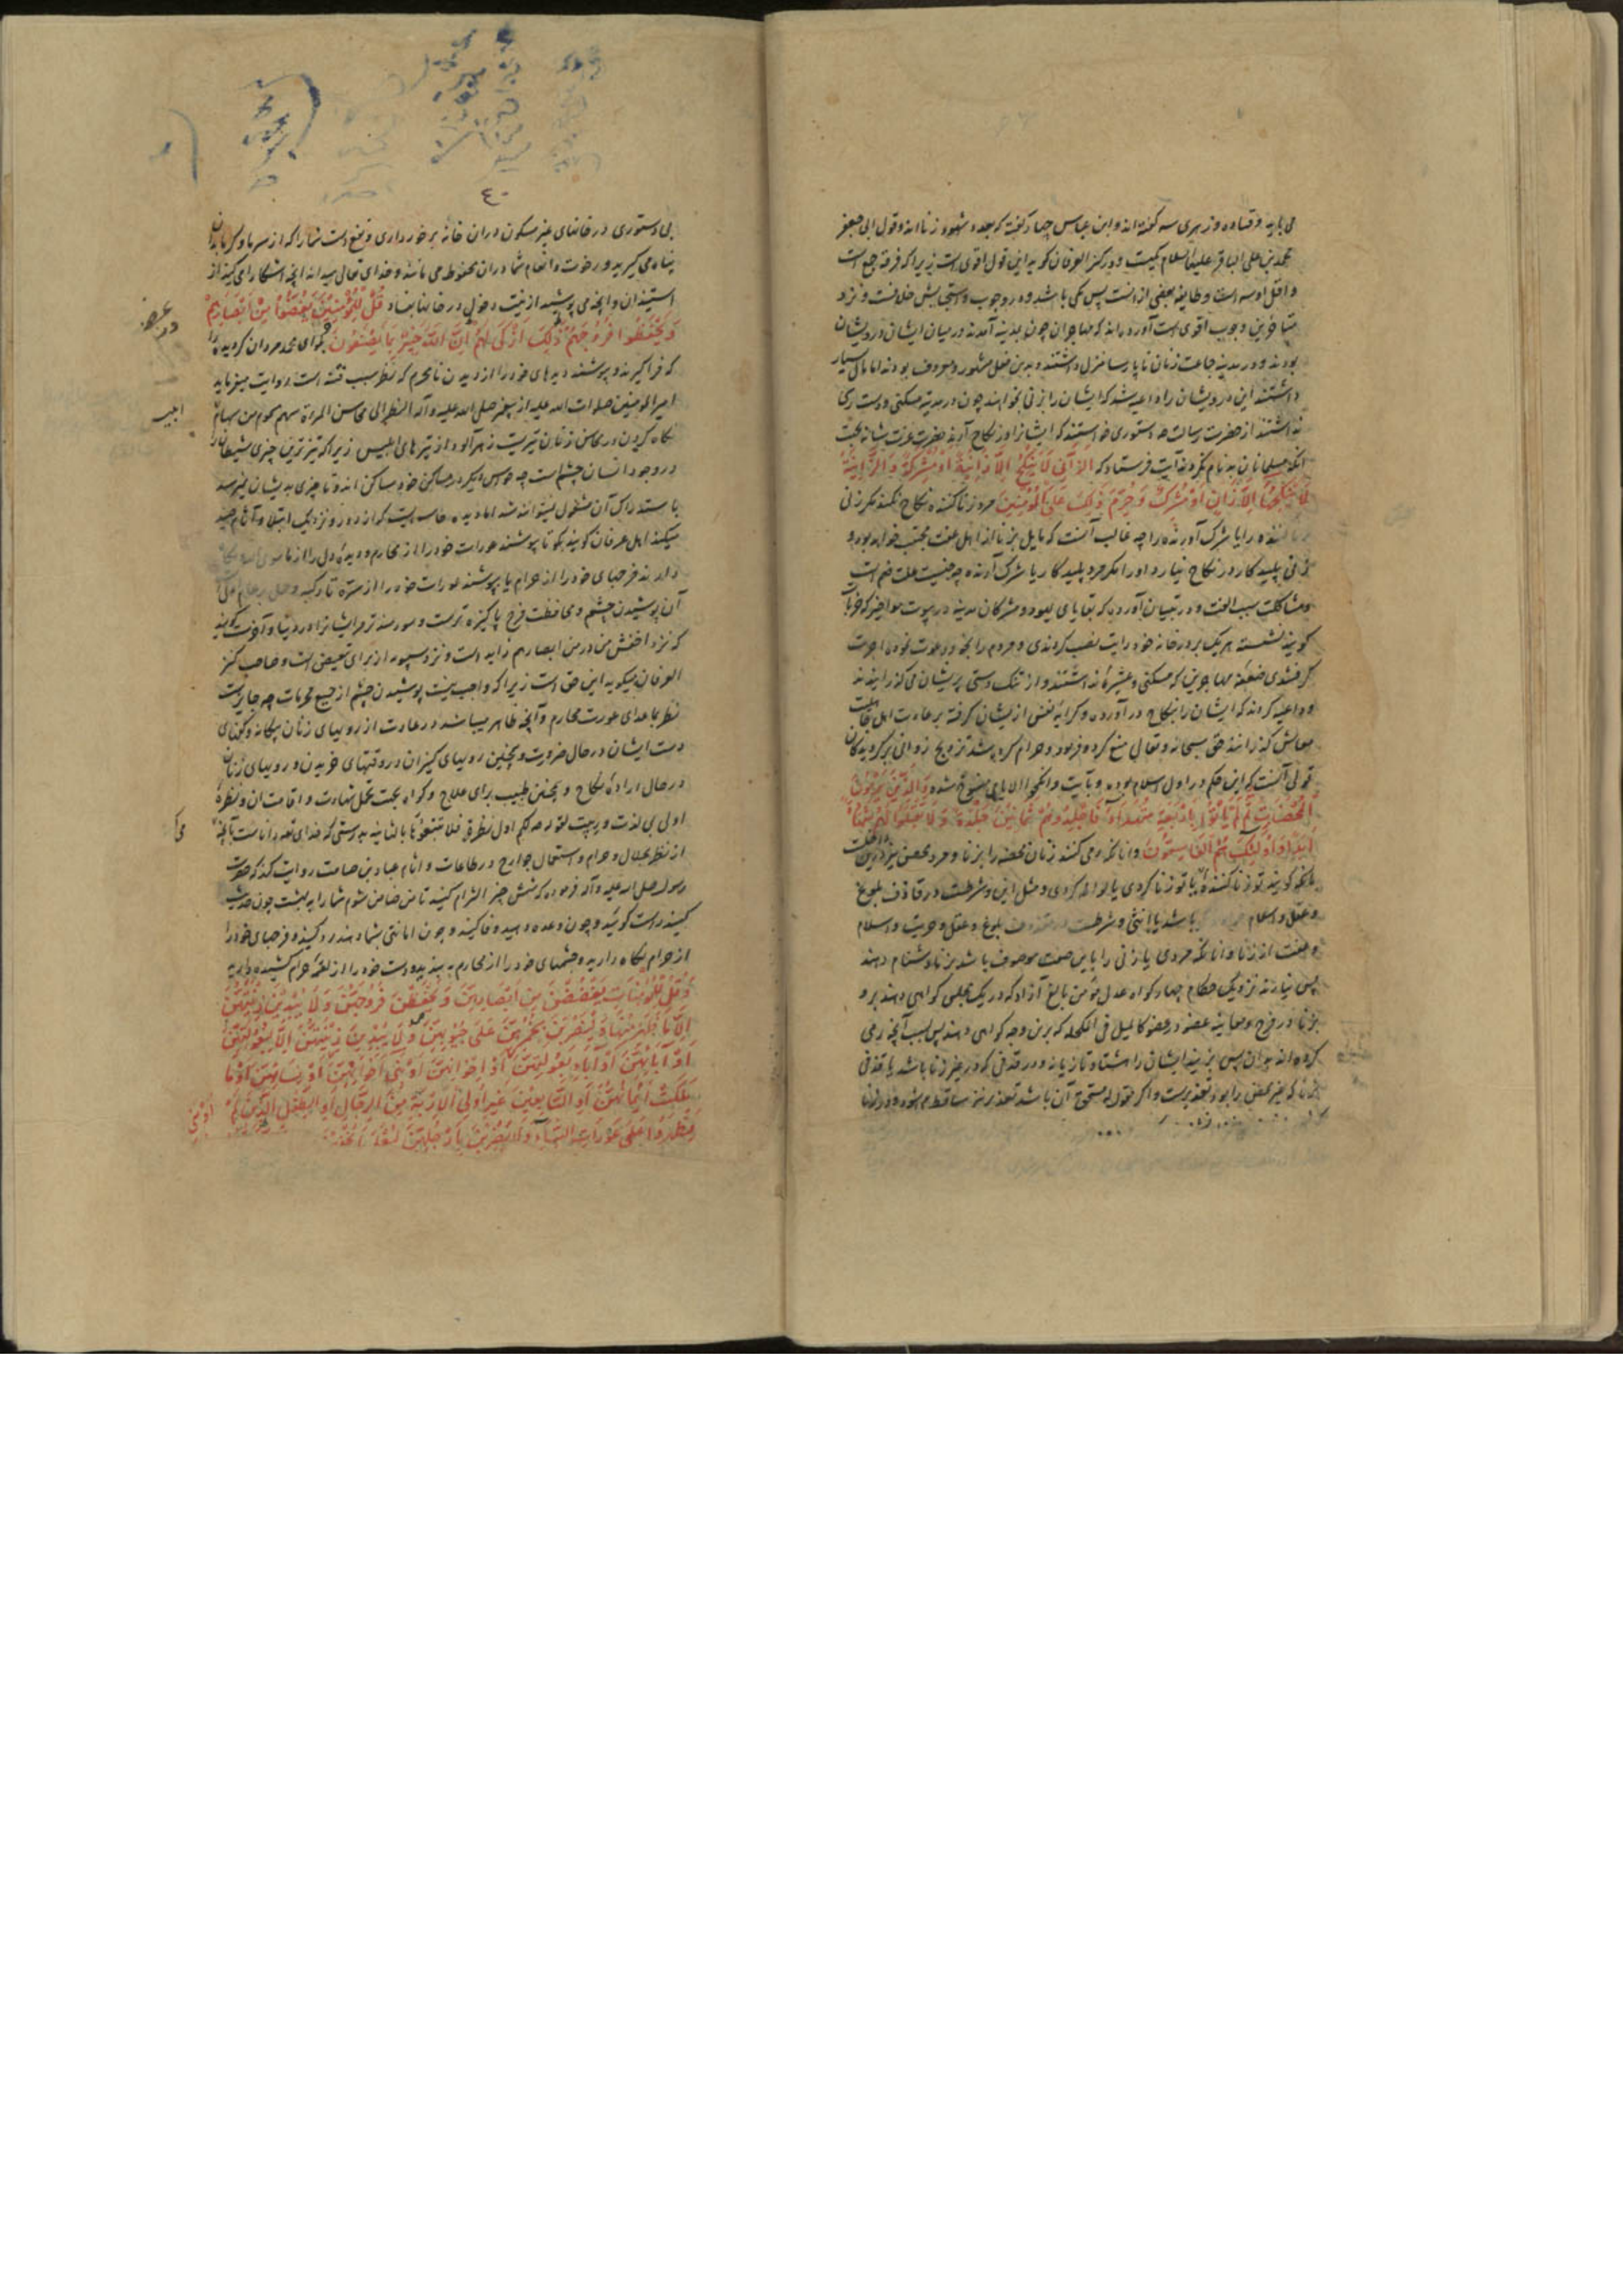 می باید و قتاده و زهری سه گفته اند و ابن عباس چهار گفته که بعدد شهود زنا اند و قول ابی جعفر
محمد بن علی الباقر علیهما السلام یکیست و در کنز العرفان گوید این قول اقوی است زیرا که فرقه جمع است
و اقل او سه است و طایفه بعضی از انست پس یکی باشد و در وجوب و استحبابش خلافست و نزد
متاخرین وجوب اقوی است آورده اند که مهاجران چون بمدینه آمدند در میان ایشان درویشان
بودند و در مدینه جماعت زنان ناپارسا منزل داشتند و بدین فعل مشهور و معروف بودند اما مال بسیار
داشتند این درویشان را داعیه شد که ایشان را بزنی بخواهند چون در مدینه مسکنی و دست رسی
نداشتند از حضرت رسالت دستوری خواستند که ایشانرا در نکاح آرند حضرت عزت شانه بجهت
آنکه مسلمانان بدنام نگردند آیت فرستاد که الزَّانِی لَا یَنْکِحُ اِلَّا زَانِیَةً اَوْ مُشْرِکَةً وَ الزَّانِیَةُ
لَا یَنْکِحُهَا اِلَّا زَانٍ اَوْ مُشْرِکٌ وَ حُرِّمَ ذٰلِکَ عَلَی الْمُؤْمِنِینَ مرد زنا کننده نکاح نکند مگر زنی
زنا کننده را یا شرک آورنده را چه غالب آنست که مایل بزنا از اهل عفت مجتنب خواهد بود و
زنی پلید کار در نکاح نیارد او را مگر مرد پلید کار یا شرک آورنده چه جنسیت علت ضم است
و مشاکلت سبب الفت و در تبیان آورده که بقایای یهود و مشرکان مدینه در بیوت مواخیر که خرابات
گویند نشسته هر یک بر در خانه خود رایت نصب کردندی و مردم را بخود دعوت نموده اجرت
گرفتندی ضعفه مهاجرین که مسکنی و عشیره نداشتند و از تنگ دستی پریشان می گذرانیدند
داعیه کردند که ایشان را بنکاح در آورده و کرایه نفس از یشان گرفته بر عادت اهل جاهلیت
معاش گذرانند حق سبحانه و تعالی منع کرده فرمود و حرام کرده شد تزویج زوانی بر گرویدگان
قولی آنست که این حکم در اول اسلام بوده و بآیت و انکحوا الایامی منسوخ شده وَ الَّذِینَ یَرْمُونَ
الْمُحْصَنَاتِ ثُمَّ لَمْ یَأْتُوا بِاَرْبَعَةِ شُهَدَاءَ فَاجْلِدُوهُمْ ثَمَانِینَ جَلْدَةً وَ لَا تَقْبَلُوا لَهُمْ شَهَادَةً
اَبَدًا وَ اُولٰئِکَ هُمُ الْفَاسِقُونَ و انانکه رمی کنند زنان محصنه را بزنا و مرد محصن نیز
بانکه گویند تو زنا کننده یا تو زنا کردی یا لواطه کردی و مثل این و شرطست در قاذف بلوغ
و عقل و اسلام باشد یا انثی و شرطست در مقذوف بلوغ و عقل و حریت و اسلام
و عفت از زنا و انانکه مردی یا زنی را باین صفت موصوف باشد بزنا دشنام دهند
پس نیارند نزدیک حکام چهار گواه عدل مؤمن بالغ آزاد که در یک مجلس گواهی دهند برو
بزنا در فرج و معاینه عضو در عضو کالمیل فی المکحله که برین وجه گواهی دهند پس بسبب آنچه رمی
کرده اند بدان پس بزنید ایشان را هشتاد تازیانه و در قذفی که در غیر زنا باشد یا قذفی
که غیر محصن را بود تعزیرست و اگر مقول له مستحق آن باشد تعزیر نیز ساقط میشود
٤٠
بی دستوری در خانهای غیر مسکون در ان خانه بر خورداری و نفع است شما را که از سرما و گرما بدان
پناه می گیرید و رخوت و انعام شما در ان محفوظ می ماند و خدای تعالی میداند انچه آشکارا می کنید از
استیذان و انچه می پوشید از نیت دخول در خانها بفساد قُلْ لِلْمُؤْمِنِینَ یَغُضُّوا مِنْ اَبْصَارِهِمْ
وَ یَحْفَظُوا فُرُوجَهُمْ ذٰلِکَ اَزْکٰی لَهُمْ اِنَّ اللّٰهَ خَبِیرٌ بِمَا یَصْنَعُونَ بگو ای محمد مردان گرویده را
که فرا گیرند و پوشند دیدهای خود را از دیدن نامحرم که نظر سبب فتنه است روایت میفرماید
امیر المومنین صلوات الله علیه از پیغمبر صلی الله علیه و آله النظر الی محاسن المراة سهم مسموم من سهام
ابلیس
نگاه کردن در محاسن زنان تیریست زهر آلود از تیرهای ابلیس زیرا که تیز ترین چیزی شیطان را
در وجود انسان چشم است چه حواس دیگر در مساکن خود ساکن اند و تا چیزی بدیشان نمیرسد
باستدراک آن مشغول نمیتوانند شد اما دیده حاسه ایست که از دور و نزدیک ابتلا و آثام صید
میکند اهل عرفان گویند بگو تا بپوشند عورات خود را از محارم و دیده دل را از ما سوی الله نگاه
دارند فرجهای خود را از حرام یا بپوشند عورات خود را از سره تا رکبه
آن پوشیدن چشم و محافظت فرج پاکیزه ترست و سودمندتر مر ایشانرا در دنیا و آخرت گویند
که نزد اخفش من در من ابصارهم زایده است و نزد سیبویه از برای تبعیض است و صاحب کنز
العرفان میگوید این حق است زیرا که واجب نیست پوشیدن چشم از جمیع محرمات چه جایزست
نظر بما عدای عورت محارم و آنچه ظاهر میباشد در عادت از رویهای زنان بیگانه و کفهای
دست ایشان در حال ضرورت و همچنین رویهای کنیزان در وقتهای خریدن و رویهای زنان
در حال اراده نکاح و همچنین طبیب برای علاج و گواه بجهت تحمل شهادت و اقامت ان و نظره
اولی بی لذت و ریبت لقوله لکم اول نظرة فلا تتبعوها بالثانیه بدرستی که خدای تعالی داناست بآنچه
می کنند
از نظر بحلال و حرام و استعمال جوارح در طاعات و اثام عباده بن صامت روایت کند که حضرت
رسول صلی الله علیه و آله فرموده که شش چیز التزام کنید تا من ضامن شوم شما را به بهشت چون حدیث
کنید راست گوئید و چون وعده دهید وفا کنید و چون امانتی بشما دهند رد کنید و فرجهای خود را
از حرام نگاه دارید و چشمهای خود را از محارم بپوشید و دست خود را از لقمه حرام کشیده دارید
وَ قُلْ لِلْمُؤْمِنَاتِ یَغْضُضْنَ مِنْ اَبْصَارِهِنَّ وَ یَحْفَظْنَ فُرُوجَهُنَّ وَ لَا یُبْدِینَ زِینَتَهُنَّ
اِلَّا مَا ظَهَرَ مِنْهَا وَ لْیَضْرِبْنَ بِخُمُرِهِنَّ عَلٰی جُیُوبِهِنَّ وَ لَا یُبْدِینَ زِینَتَهُنَّ اِلَّا لِبُعُولَتِهِنَّ
اَوْ آبَائِهِنَّ اَوْ آبَاءِ بُعُولَتِهِنَّ اَوْ اِخْوَانِهِنَّ اَوْ بَنِی اَخَوَاتِهِنَّ اَوْ نِسَائِهِنَّ اَوْ مَا
مَلَکَتْ اَیْمَانُهُنَّ اَوِ التَّابِعِینَ غَیْرِ اُولِی الْاِرْبَةِ مِنَ الرِّجَالِ اَوِ الطِّفْلِ الَّذِینَ لَمْ
یَظْهَرُوا عَلٰی عَوْرَاتِ النِّسَاءِ وَ لَا یَضْرِبْنَ بِاَرْجُلِهِنَّ لِیُعْلَمَ مَا یُخْفِینَ